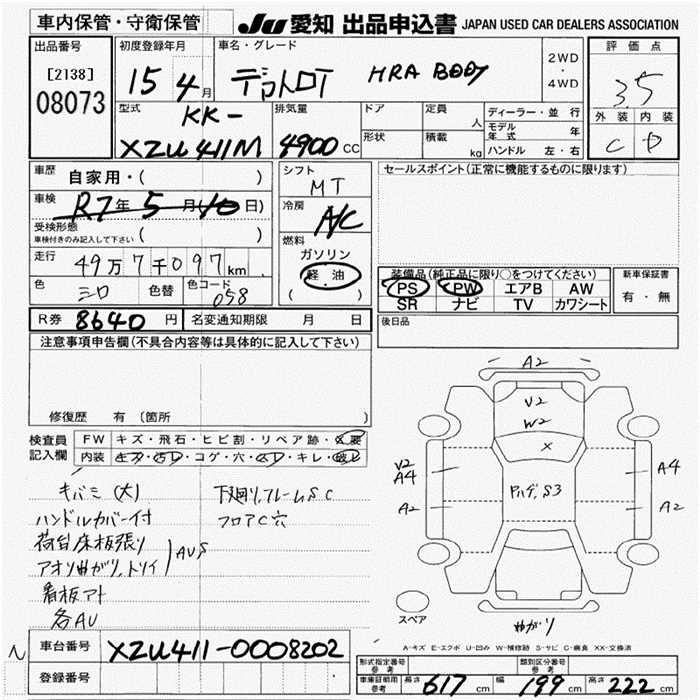 車内保管・守衛保管
JU 愛知 出品申込書 JAPAN USED CAR DEALERS ASSOCIATION
出品番号
[2138]
08073
初度登録年月
15 4月
車名・グレード
HRA BODY
2WD
・
4WD
評価点
3.5
外装 内装
C D
型式
KK-
XZU411M
排気量
4900 cc
ドア
形状
定員 人
積載 kg
ディーラー・並行
モデル年式 年
ハンドル 左・右
車歴
自家用・( )
車検
R7年 5月 10日)
受検形態
車検付きのみ記入して下さい ( )
走行
49万7千097km
色
シロ
色替
色コード
058
シフト
MT
冷房
A/C
燃料
ガソリン
軽油
( )
セールスポイント(正常に機能するものに限ります)
装備品(純正品に限り○をつけてください)
PS PW エアB AW
SR ナビ TV カワシート
新車保証書
有・無
R券 8640 円 名変通知期限 月 日
後日品
注意事項申告欄(不具合内容等は具体的に記入して下さい)
修復歴 有(箇所 )
検査員
記入欄
FW キズ・飛石・ヒビ割・リペア跡・×要
内装 キズ・汚レ・コゲ・穴・スレ・キレ・破レ
キバミ(大)
ハンドルカバー付
荷台床板張り
アオリ曲がり,トリイ AUS
看板アト
各AU
下廻り,フレームSC
フロアC穴
A2
V2
W2
×
V2
A4
A2
A4
A2
ハゲ,S3
曲がり
スペア
A-キズ E-エクボ U-凹み W-補修跡 S-サビ C-腐食 XX-交換済
N
車台番号 XZU411-0008202
登録番号
形式指定番号
参考
類別区分番号
参考
車庫証明用
参考
長さ 617 cm 幅 199 cm 高さ 222 cm